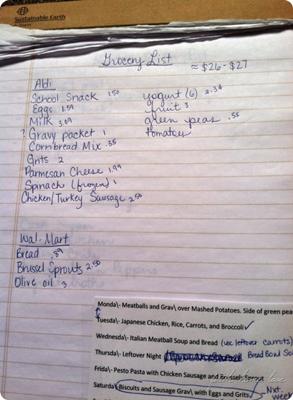 Sustainable Earth
Grocery List
≈ $26 - $27
Aldi
School Snack 1.50
Eggs 1.59
Milk 3.09
? Gravy packet 1
Cornbread Mix .35
Grits 2
Parmesan Cheese 1.99
Spinach (frozen) 1
Chicken/Turkey Sausage 2.50
yogurt (6) 2.34
fruit 3
green peas .55
tomatoes
Wal-Mart
Bread .89
Brussel Sprouts 2.50
Olive oil 3
Monda\- Meatballs and Grav\ over Mashed Potatoes. Side of green pea
Tuesda\- Japanese Chicken, Rice, Carrots, and Broccoli ✓
Wednesda\- Italian Meatball Soup and Bread (use leftover carrots)
Thursda\- Leftover Night Bread Bowl Sou
Frida\- Pesto Pasta with Chicken Sausage and Brussel Sprouts
Saturda\ Biscuits and Sausage Grav\ with Eggs and Grits
Nxt. week